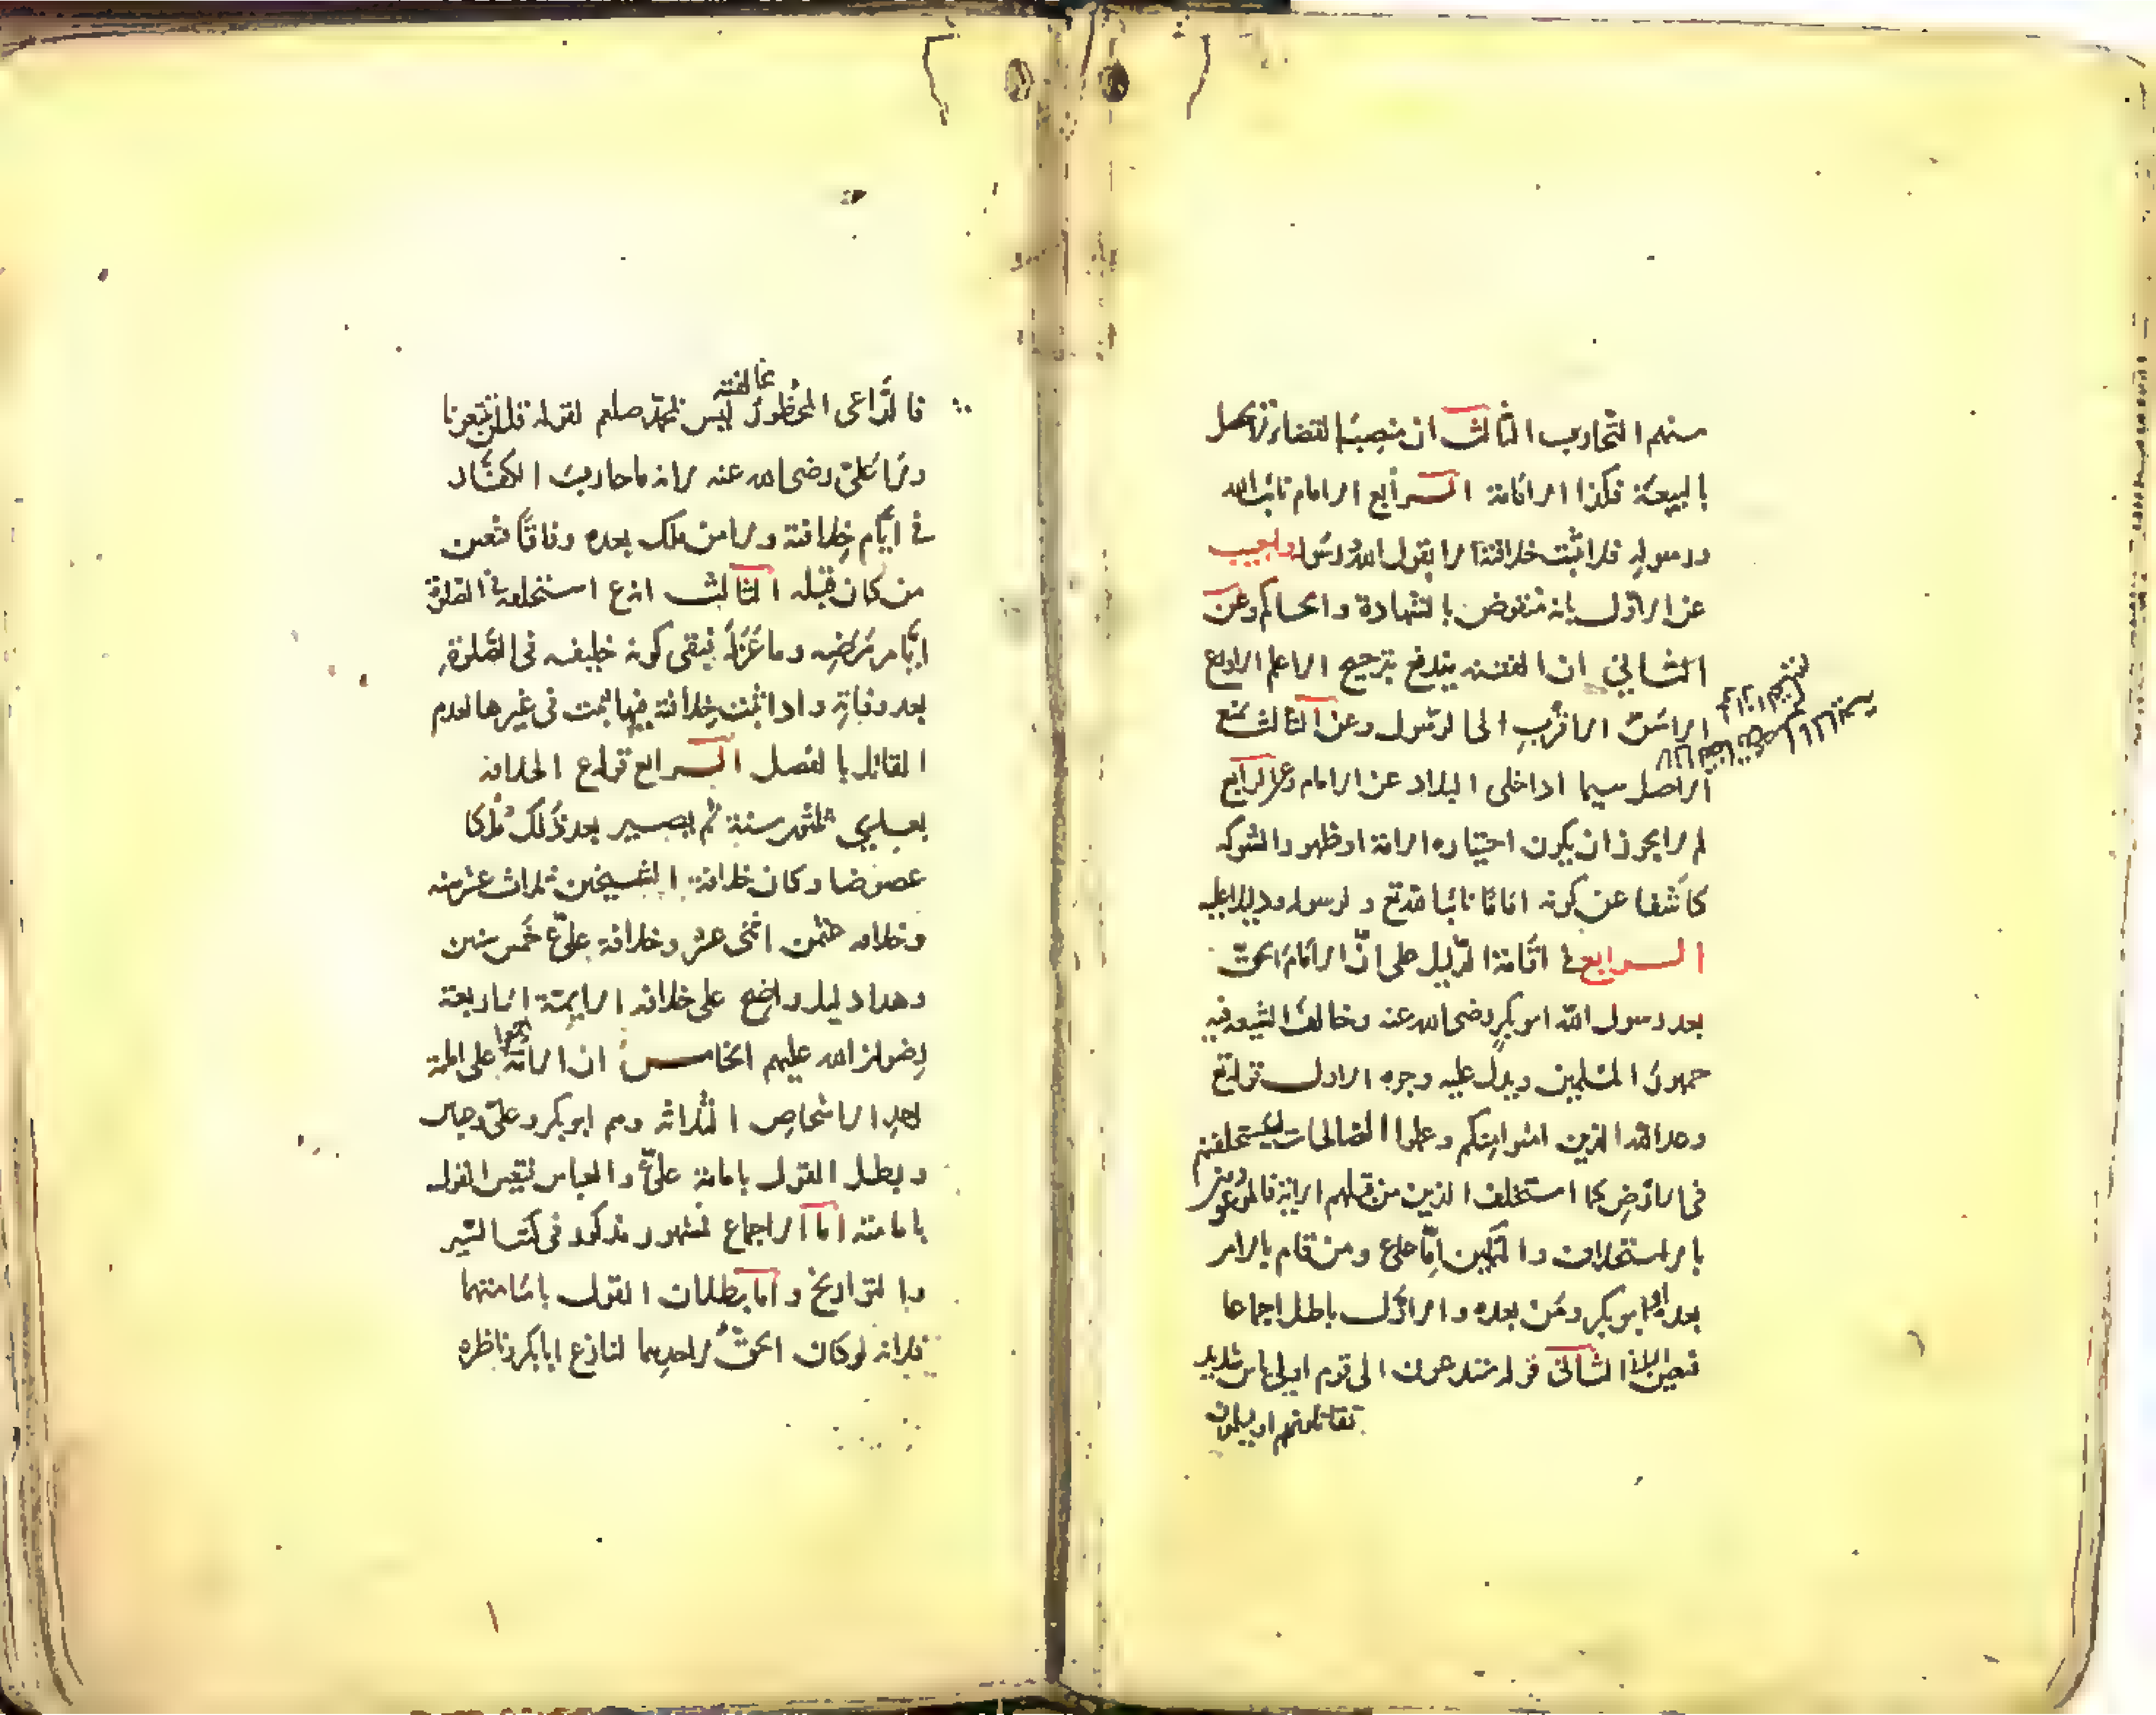 منهم التحارب الثالث ان منصب القضاء لا يحصل
بالبيعة فكذا الامامة الرابع الامام نائب الله
ورسوله فلا تثبت خلافته الا بقول الله ورسوله واجيب
عن الاول بانه منقوض بالشهادة والحاكم وعن
الثاني ان الفتنة يندفع بترجيح الاعلم الاورع
الاسن الاقرب الى الرسول وعن الثالث بمنع
الاصل سيما اذا خلى البلاد عن الامام وعن الرابع
لم لا يجوز ان يكون اختيار الامة او ظهور الشوكة
كاشفا عن كونه اماما نائبا لله تع ولرسوله ودليلا عليه
الرابع في اقامة الدليل على ان الامام الحق
بعد رسول الله ابو بكر رضى الله عنه وخالف الشيعة فيه
جمهور المسلمين ويدل عليه وجوه الاول قوله تع
وعد الله الذين امنوا منكم وعملوا الصالحات ليستخلفنهم
فى الارض كما استخلف الذين من قبلهم الاية فالموعودون
بالاستخلاف والتمكين اما على ومن قام بالامر
بعده او ابو بكر ومن بعده والاول باطل اجماعا
فتعين الثانى الثانى قوله ستدعون الى قوم اولى باس شديد
تقاتلونهم او يسلمون
فالداعى المحظور مخالفته ليس محمد صلعم لقوله قل لن تتبعونا
ولا على رضى الله عنه لانه ما حارب الكفار
فى ايام خلافته ولا من ملك بعده وفاقا فتعين
من كان قبله الثالث انه ع استخلفه فى الصلوة
ايام مرضه وما عزله فبقى كونه خليفه فى الصلوة
بعد وفاته واذا ثبت خلافته فيها ثبت فى غيرها لعدم
القائل بالفصل الرابع قوله ع الخلافة
بعدي ثلثون سنة ثم يصير بعد ذلك ملكا
عضوضا وكان خلافة الشيخين ثلاث عشر سنه
وخلافه عثمن اثنى عشر وخلافة على ع خمس سنين
وهذا دليل واضح على خلافة الايمة الاربعة
رضوان الله عليهم الخامس ان الامة اجمعوا على امامة
احد الاشخاص الثلاثة وهم ابو بكر وعلى وعباس
وبطل القول بامامة على ع والعباس فتعين القول
بامامته اما الاجماع فمشهور مذكور فى كتب السير
والتواريخ واما بطلان القول بامامتهما
فلانه لو كان الحق لاحدهما لنازع ابا بكر وناظره